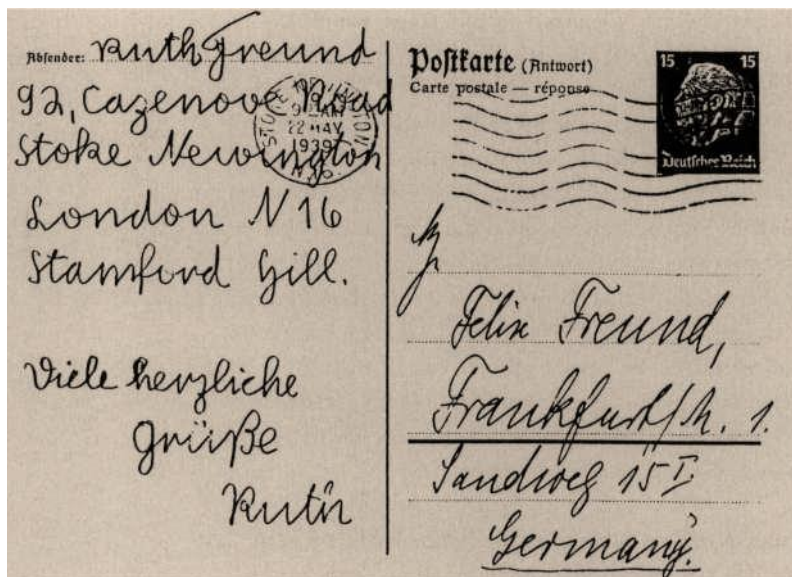 Absender: Ruth Freund
92, Cazenove Road
Stoke Newington
London N 16
Stamford Hill.
Viele herzliche
Grüße
Ruth
STOKE NEWINGTON
22 MAY
1939
N.16.
Postkarte (Antwort)
Carte postale — réponse
15 15
Deutsches Reich
Felix Freund,
Frankfurt/M. 1.
Sandweg 15 I.
Germany.